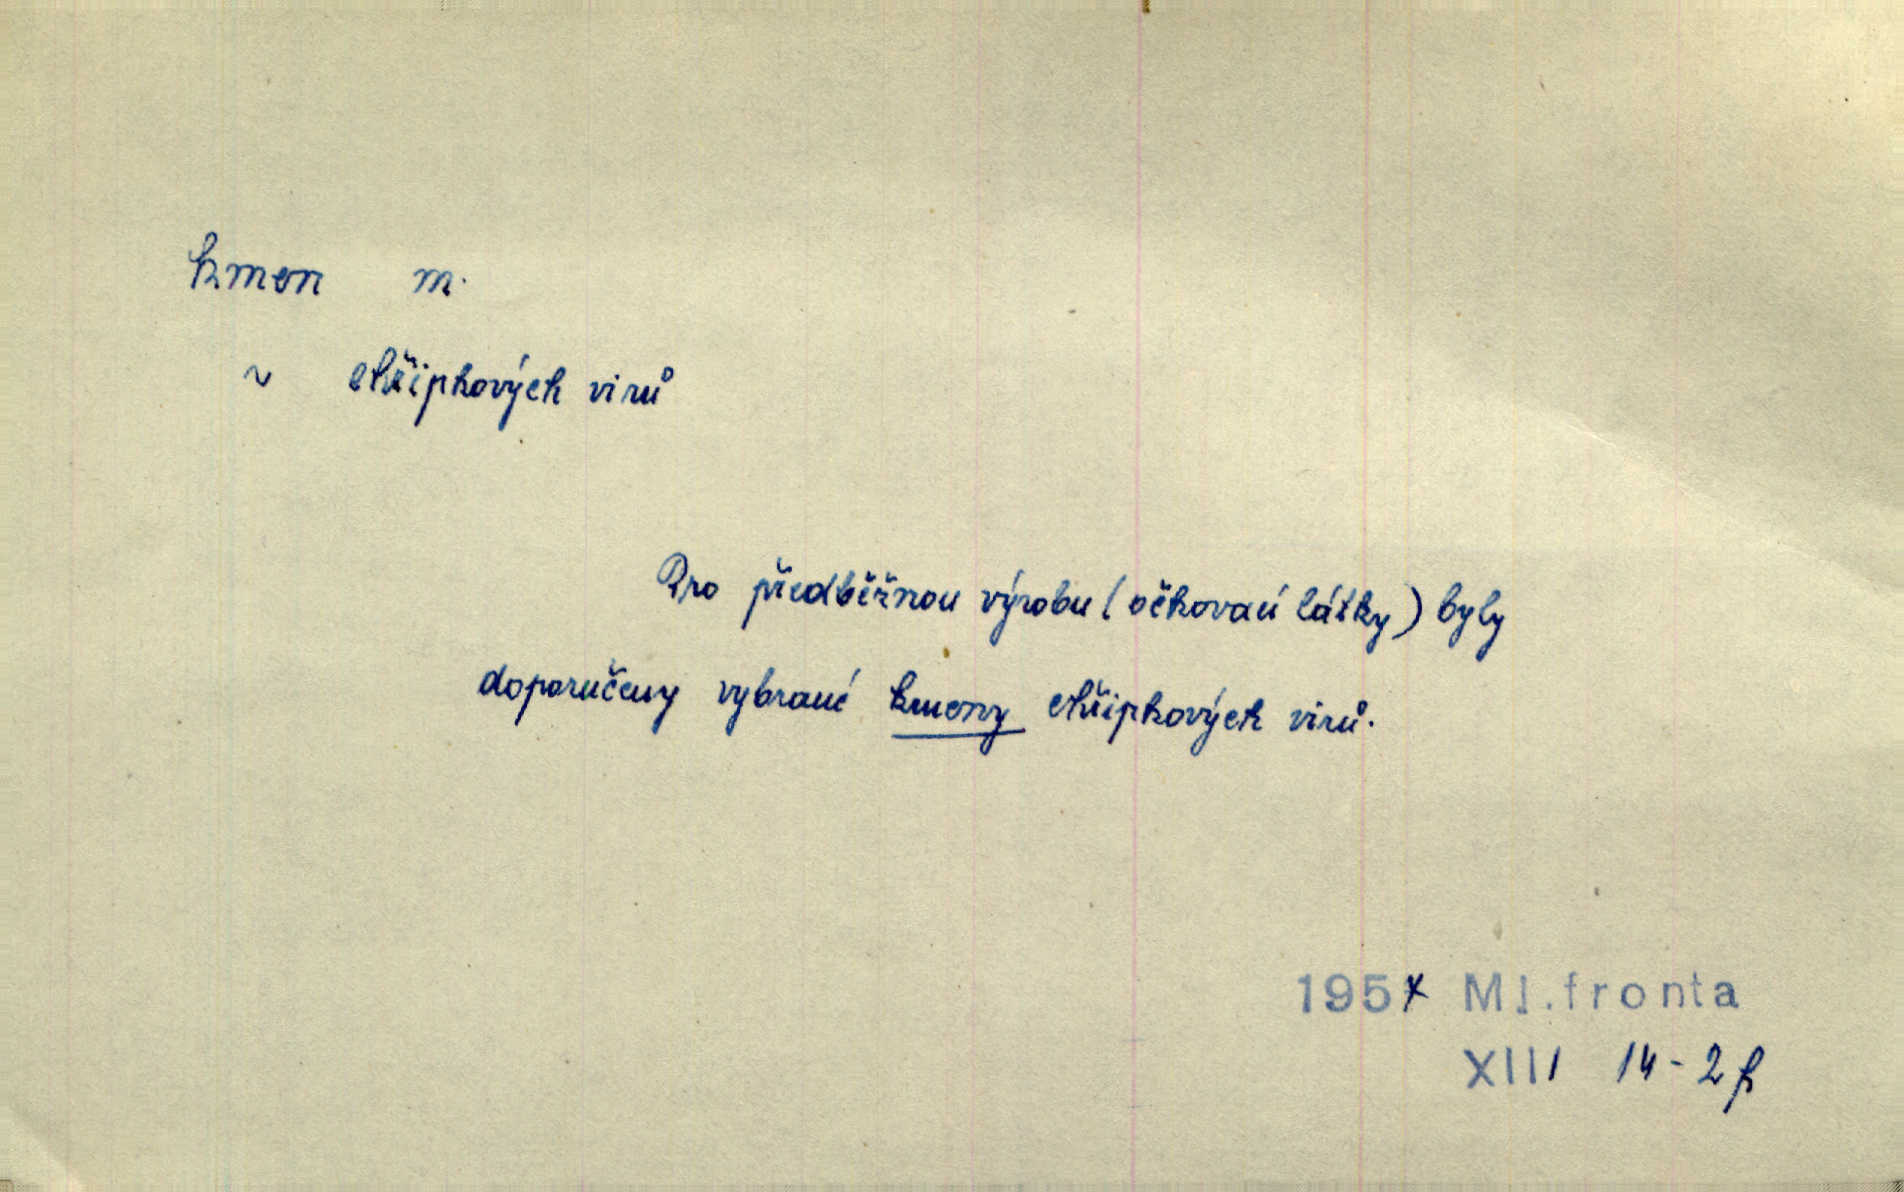 kmen m.
~ chřipkových virů
Pro předběžnou výrobu (očkovací látky) byly
doporučeny vybrané kmeny chřipkových virů.
1957 Ml.fronta
XIII 14-2